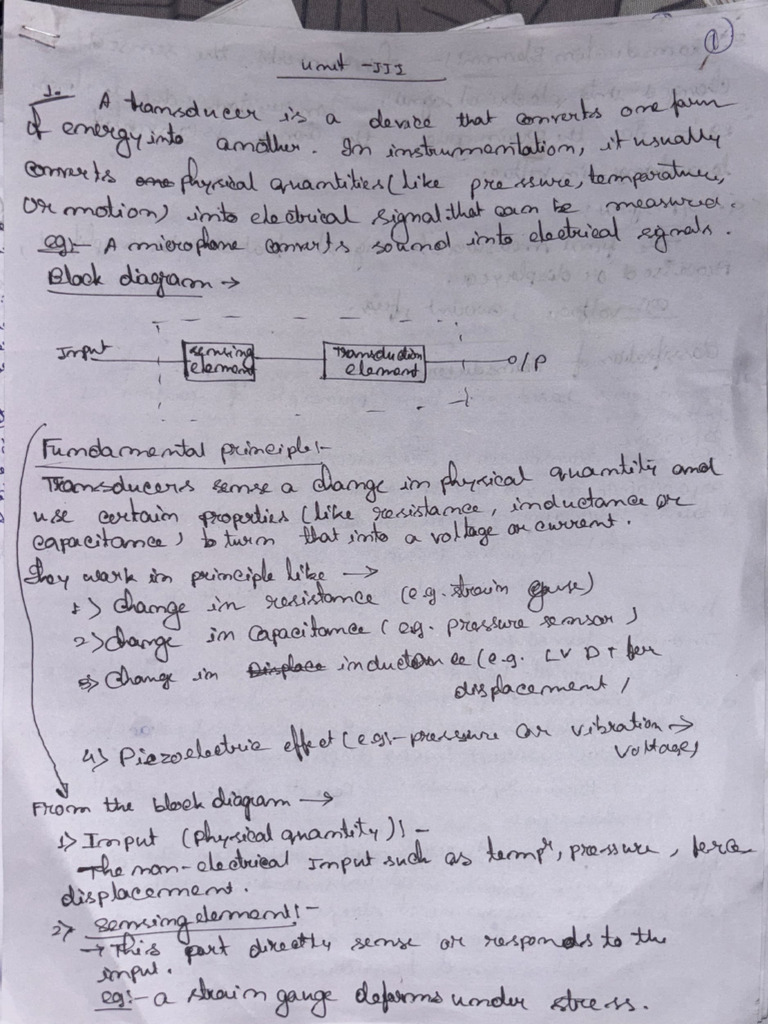 ①
Unit -III
1. A transducer is a device that converts one form
of energy into another. In instrumentation, it usually
converts physical quantities (like pressure, temperature,
or motion) into electrical signal that can be measured.
eg:- A microphone converts sound into electrical signals.
Block diagram →
Input
sensing
element
Transduction
element
O/P
Fundamental principle:-
Transducers sense a change in physical quantity and
use certain properties (like resistance, inductance or
capacitance) to turn that into a voltage or current.
They work in principle like →
1) Change in resistance (e.g. strain gauge)
2) Change in capacitance (eg. pressure sensor)
3) Change in inductance (e.g. LVDT for
displacement)
4) Piezoelectric effect (eg:- pressure or vibration →
voltage)
From the block diagram →
1) Input (physical quantity):-
The non-electrical Input such as tempr, pressure, force
displacement.
2) Sensing element:-
→ This part directly sense or responds to the
input.
eg:- a strain gauge deforms under stress.